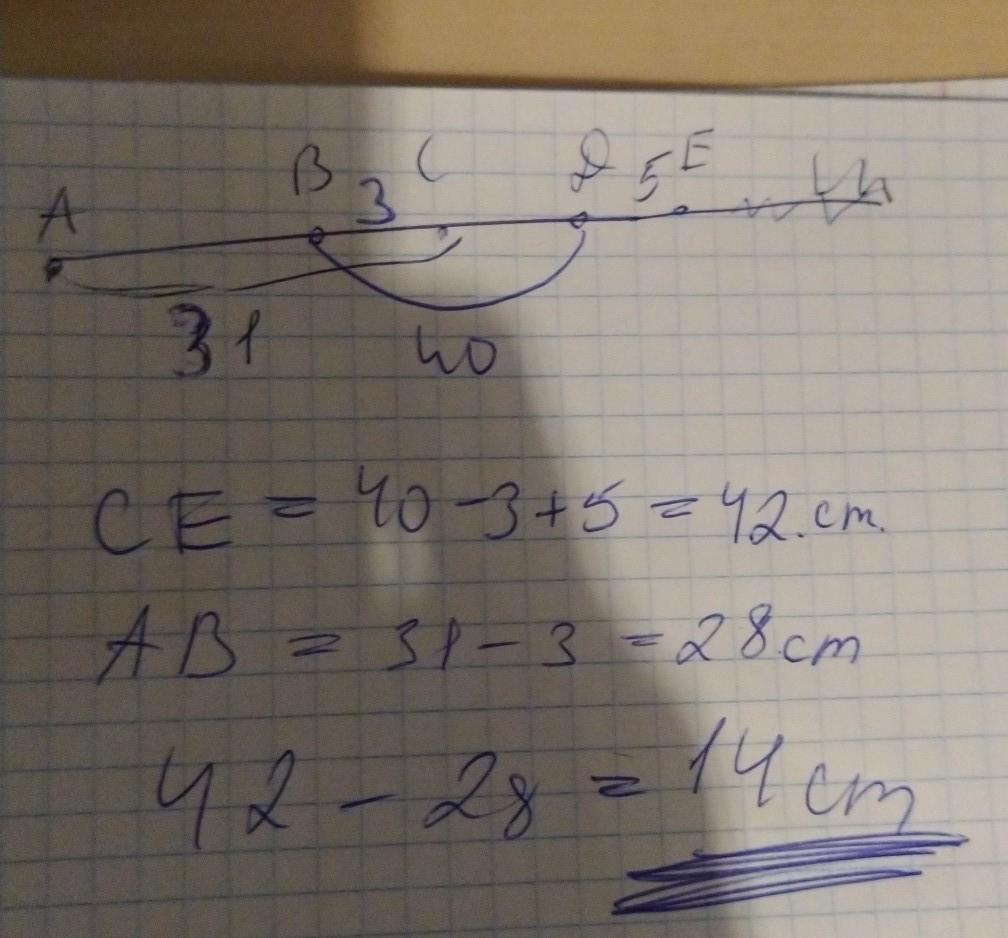 A B 3 C D 5 E
31 40
CE = 40 - 3 + 5 = 42. cm.
AB = 31 - 3 = 28 cm
42 - 28 = 14 cm